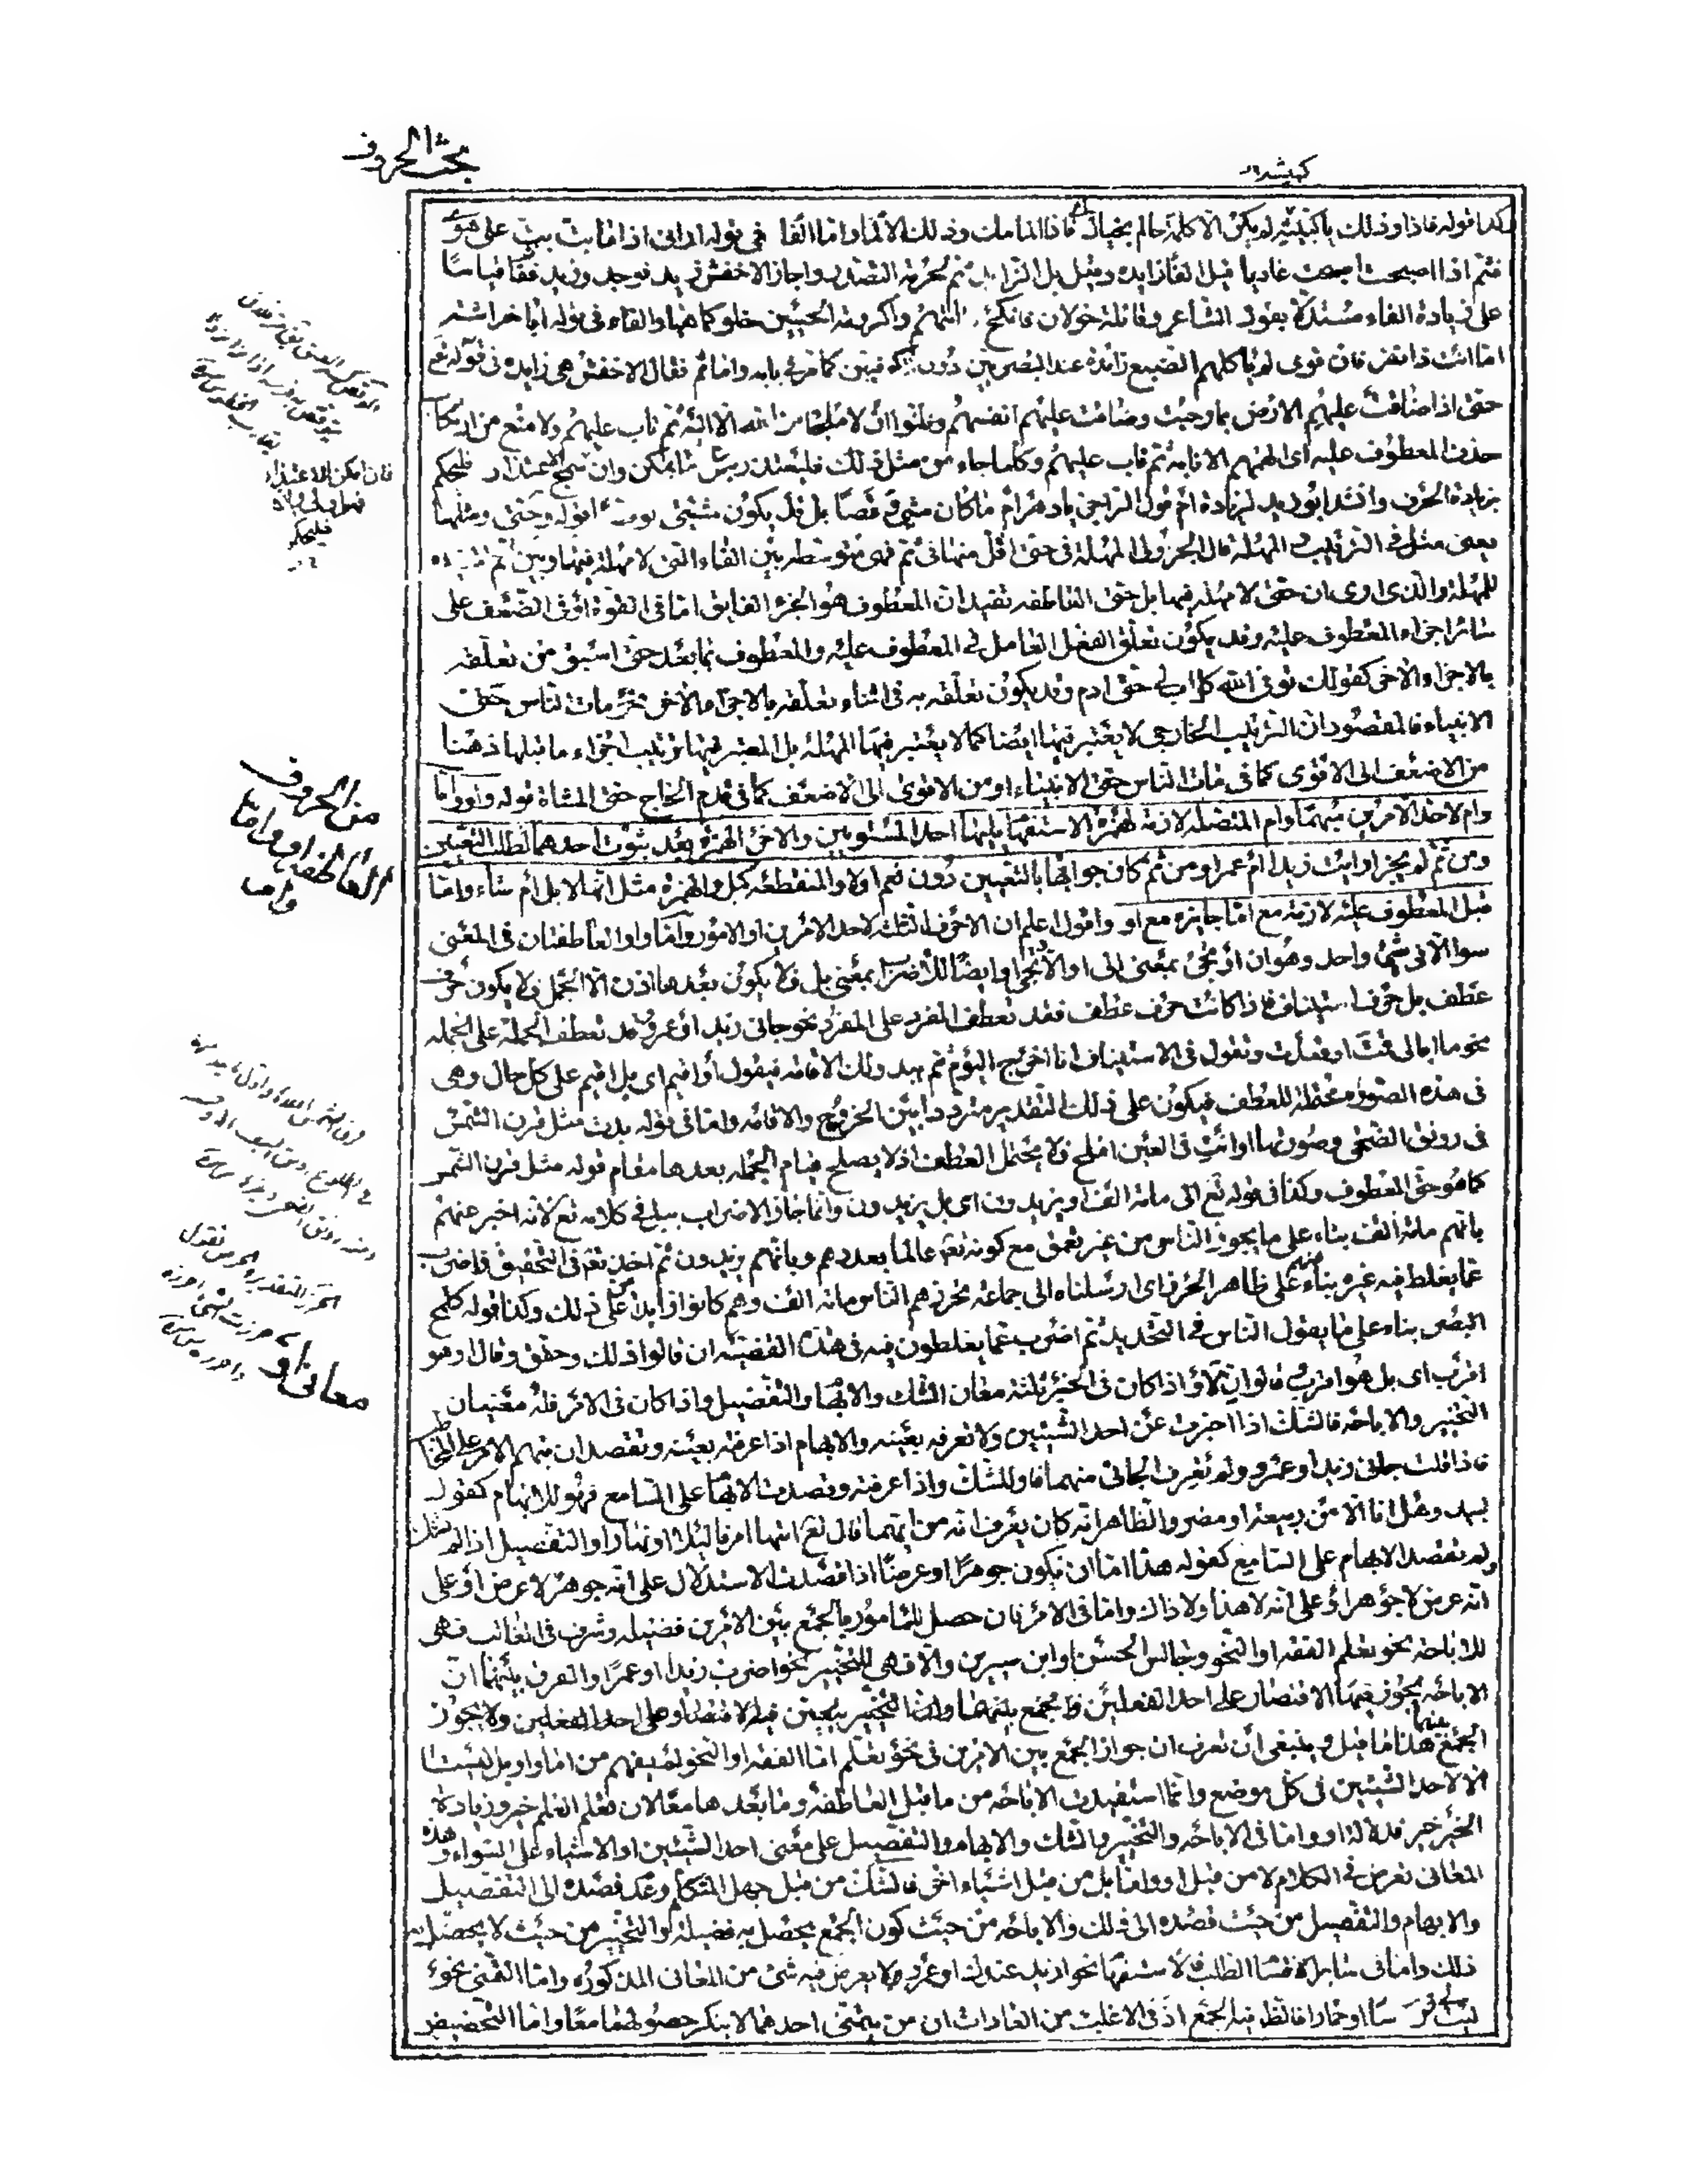 بحث الحروف
كذا قوله فاذا وذلك يا كبيشه لم يكن الا كلمة حالم بخيال اى فاذا المامك وذلك الالمام واما الفا فى قوله ارانى اذا ما بت بت على هوى
فثم اذا اصبحت اصبحت غاديا قيل الفا زايده وقيل بل الزايد ثم لحرمة التصدر واجاز الاخفش زيد فوجد وزيد فقام قياسا
على زيادة الفاء مستدلا بقول الشاعر وقائلة خولان فانكح فتاتهم واكرومة الحيين خلو كما هيا والفاء فى قوله ابا خراشة
اما انت ذا نفر فان قومى لم تاكلهم الضبع زائدة عند البصريين دون الكوفيين كما مر فى بابه واما ثم فقال الاخفش هى زايده فى قوله تع
حتى اذا ضاقت عليهم الارض بما رحبت وضاقت عليهم انفسهم وظنوا ان لا ملجا من الله الا اليه ثم تاب عليهم ولا منع من ارتكاب
حذف المعطوف عليه اى الهمهم الانابة ثم تاب عليهم وكلما جاء من مثل ذلك فليعتذر بما يمكن وان سمج الاعتذار فليحكم
بزيادة الحرف وانشد ابو زيد لزيادة ام قول الراجز يا دهر ام ما كان مشيى رقصا بل قد يكون مشيتى توقصا قوله وحتى ومثلها
يعنى مثل فى الترتيب والمهلة قال الجزولى المهلة فى حتى اقل منها فى ثم فهى متوسطه بين الفاء التى لا مهلة فيها وبين ثم المفيده
للمهلة والذى ارى ان حتى لا مهلة فيها بل حتى العاطفه تفيد ان المعطوف هو الجزء الفايق اما فى القوة او فى الضعف على
سائر اجزاء المعطوف عليه وقد يكون تعلق الفعل العامل فى المعطوف عليه والمعطوف بما بعد حتى اسبق من تعلقه
بالاجزاء الاخر كقولك توفى الله كل اب لى حتى ادم وقد يكون تعلقه به فى اثناء تعلقه بالاجزاء الاخر نحو مات الناس حتى
الانبياء فالمقصود ان الترتيب الخارجى لا يعتبر فيها ايضا كما لا يعتبر فيها المهلة بل المعتبر فيها ترتيب اجزاء ما قبلها ذهنا
من الاضعف الى الاقوى كما فى مات الناس حتى الانبياء او من الاقوى الى الاضعف كما فى قدم الحاج حتى المشاة قوله واو واما
وام لاحد الامرين مبهما وام المتصلة لازمة لهمزة الاستفهام يليها احد المستويين والاخر الهمزة بعد ثبوت احدهما لطلب التعيين
ومن ثم لم يجز ارايت زيدا ام عمرا ومن ثم كان جوابها بالتعيين دون نعم او لا والمنقطعه كبل والهمزة مثل انها لابل ام شاء واما
قبل المعطوف عليه لازمة مع اما جايزة مع او واقول اعلم ان الاحرف الثلثة لاحد الامرين او الامور واما واو العاطفتان فى المعنى
سواء الا فى شىء واحد وهو ان او تجىء بمعنى الى او الا وتجىء ايضا للاضراب بمعنى بل فلا يكون بعدها اذن الا الجمل فلا يكون حرف
عطف بل حرف استيناف فاذا كانت حرف عطف فقد تعطف المفرد على المفرد نحو جائى زيد او عمرو وقد تعطف الجملة على الجمله
نحو ما ابالى قمت او قعدت وتقول فى الاستيناف انا اخرج اليوم ثم يبدو لك الاقامة فتقول او اقيم اى بل اقيم على كل حال وهى
فى هذه الصورة محتملة للعطف فيكون على ذلك التقدير مترددا بين الخروج والاقامه واما فى قوله بدت مثل قرن الشمس
فى رونق الضحى وصورتها او انت فى العين املح فلا يحتمل العطف اذ لا يصلح قيام الجمله بعدها مقام قوله مثل قرن الشمس
كما هو حق المعطوف وكذا فى قوله تع الى مائة الف او يزيدون اى بل يزيدون وانما جاز الاضراب ببل فى كلامه تع لانه اخبر عنهم
بانهم مائة الف بناء على ما يحزر الناس من غير تعمق مع كونه تع عالما بعددهم وبانهم يزيدون ثم اخذ تع فى التحقيق فاضرب
عما يغلط فيه غيره بناء منهم على ظاهر الحزر اى ارسلناه الى جماعة يحزرهم الناس مائة الف وهم كانوا زايدين على ذلك وكذا قوله كلمح
البصر بناء على ما يقول الناس فى التحديد ثم اضرب عما يغلطون فيه فى هذه القضية ان قالوا ذلك وحقق وقال او هو
اقرب اى بل هو اقرب قالوا ان لاو اذا كان فى الخبر ثلثة معان الشك والابهام والتفصيل واذا كان فى الامر فله معنيان
التخيير والاباحة فالشك اذا اخبرت عن احد الشيئين ولا تعرفه بعينه والابهام اذا عرفته بعينه وتقصد ان تبهم الامر على المخاطب
فاذا قلت جائى زيد او عمرو ولم تعرف الجائى منهما فاو للشك واذا عرفته وقصدت الابهام على السامع فهو للابهام كقول
لبيد وهل انا الا من ربيعة او مضر والظاهر انه كان يعرف انه من ايهما قال تع اتيها امرنا ليلا او نهارا والتفصيل اذا لم تشك
ولم تقصد الابهام على السامع كقوله هذا اما ان يكون جوهرا او عرضا اذا قصدت الاستدلال على انه جوهر لا عرض او على
انه عرض لا جوهر او على انه لا هذا ولا ذاك واما فى الامر فان حصل للمامور بالجمع بين الامرين فضيلة وشرف فى الغالب فهى
للاباحة نحو تعلم الفقه او النحو وجالس الحسن او ابن سيرين والا فهى للتخيير نحو اضرب زيدا او عمرا والفرق بينهما ان
الاباحة يجوز فيها الاقتصار على احد الفعلين والجمع بينهما واما التخيير فيتعين فيه الاقتصار على احد الفعلين ولا يجوز
الجمع بينهما هذا ما قيل وينبغى ان تعرف ان جواز الجمع بين الامرين فى نحو تعلم اما الفقه او النحو لم يفهم من اما واو بل ليستا
الا لاحد الشيئين فى كل موضع وانما استفيدت الاباحة من ما قبل العاطفة وما بعدها معا لان تعلم العلم خير وزيادة
الخير خير فدلالة او واما فى الاباحة والتخيير والشك والابهام والتفصيل على معنى احد الشيئين او الاشياء على السواء وهذه
المعانى تعرض فى الكلام لا من قبل او واما بل من قبل اشياء اخر فالشك من قبل جهل المتكلم وعدم قصده الى التفصيل
والابهام والتفصيل من حيث قصده الى ذلك والاباحة من حيث كون الجمع يحصل به فضيلة والتخيير من حيث لا يحصل به
ذلك واما فى سائر اقسام الطلب فالاستفهام نحو ازيد عندك او عمرو لا يعرض فيه شئ من المعانى المذكورة واما التمنى نحو
ليت لى فرسا او حمارا فالظ فيه الجمع اذ فى الاغلب من العادات ان من يتمنى احدهما لا ينكر حصولهما معا واما التحضيض
فان امكن الاعتذار
فليحكم
من الحروف
العاطفة او واما
وام
معانى او